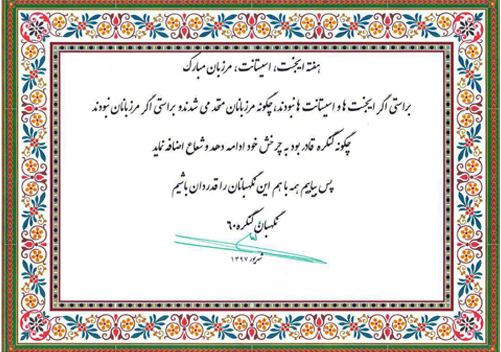 هفته ایجنت، اسیستانت، مرزبان مبارک
براستی اگر ایجنت ها و اسیستانت ها نبودند، چگونه مرزبانان متحد می شدند و براستی اگر مرزبانان نبودند
چگونه کنگره قادر بود به چرخش خود ادامه دهد و شعاع اضافه نماید
پس بیاییم همه با هم این نگهبانان را قدردان باشیم
نگهبان کنگره ۶۰
شهریور ۱۳۹۷